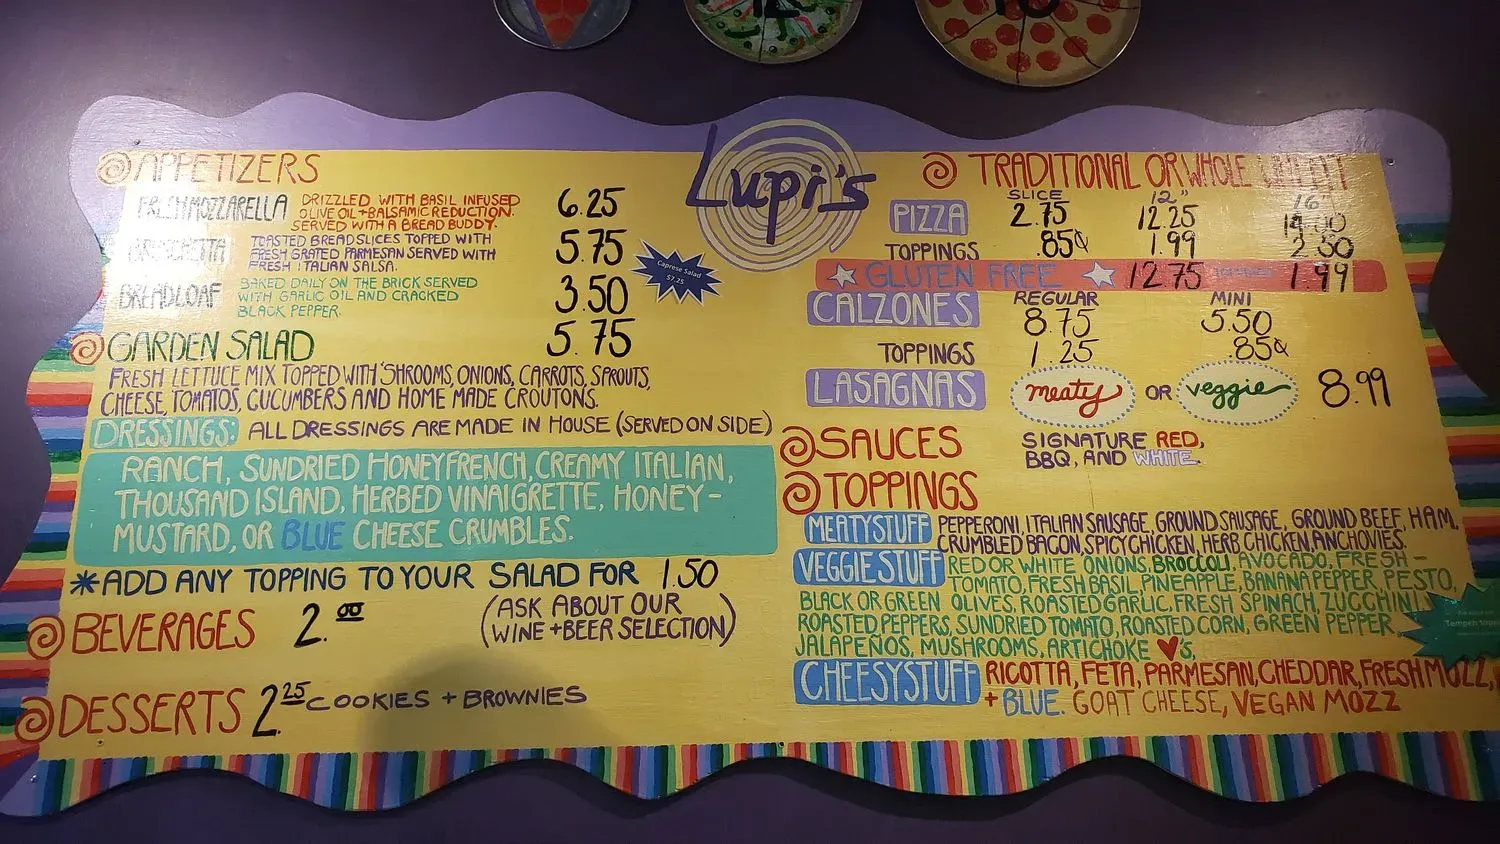 Lupi's
APPETIZERS
FRESH MOZZARELLA DRIZZLED WITH BASIL INFUSED 6.25
OLIVE OIL + BALSAMIC REDUCTION.
SERVED WITH A BREAD BUDDY.
BRUSCHETTA TOASTED BREAD SLICES TOPPED WITH 5.75
FRESH GRATED PARMESAN SERVED WITH
FRESH ITALIAN SALSA.
Caprese Salad
$7.25
BREADLOAF BAKED DAILY ON THE BRICK SERVED 3.50
WITH GARLIC OIL AND CRACKED
BLACK PEPPER.
GARDEN SALAD 5.75
FRESH LETTUCE MIX TOPPED WITH 'SHROOMS, ONIONS, CARROTS, SPROUTS,
CHEESE, TOMATOS, CUCUMBERS AND HOME MADE CROUTONS.
DRESSINGS: ALL DRESSINGS ARE MADE IN HOUSE (SERVED ON SIDE)
RANCH, SUNDRIED HONEYFRENCH, CREAMY ITALIAN,
THOUSAND ISLAND, HERBED VINAIGRETTE, HONEY-
MUSTARD, OR BLUE CHEESE CRUMBLES.
*ADD ANY TOPPING TO YOUR SALAD FOR 1.50
BEVERAGES 2.00 (ASK ABOUT OUR
WINE + BEER SELECTION)
DESSERTS 2.25 COOKIES + BROWNIES
TRADITIONAL OR WHOLE WHEAT
SLICE 12" 16"
PIZZA 2.75 12.25
TOPPINGS .85¢ 1.99 2.50
GLUTEN FREE 12.75 1.99
CALZONES REGULAR MINI
8.75 5.50
TOPPINGS 1.25 .85¢
LASAGNAS meaty OR veggie 8.99
SAUCES SIGNATURE RED,
BBQ, AND WHITE.
TOPPINGS
MEATYSTUFF PEPPERONI, ITALIAN SAUSAGE, GROUND SAUSAGE, GROUND BEEF, HAM,
CRUMBLED BACON, SPICY CHICKEN, HERB CHICKEN, ANCHOVIES.
VEGGIESTUFF RED OR WHITE ONIONS, BROCCOLI, AVOCADO, FRESH-
TOMATO, FRESH BASIL, PINEAPPLE, BANANA PEPPER, PESTO,
BLACK OR GREEN OLIVES, ROASTED GARLIC, FRESH SPINACH, ZUCCHINI
ROASTED PEPPERS, SUNDRIED TOMATO, ROASTED CORN, GREEN PEPPER
JALAPEÑOS, MUSHROOMS, ARTICHOKE ♥'s,
Tempeh
CHEESYSTUFF RICOTTA, FETA, PARMESAN, CHEDDAR, FRESH MOZZ,
+ BLUE. GOAT CHEESE, VEGAN MOZZ